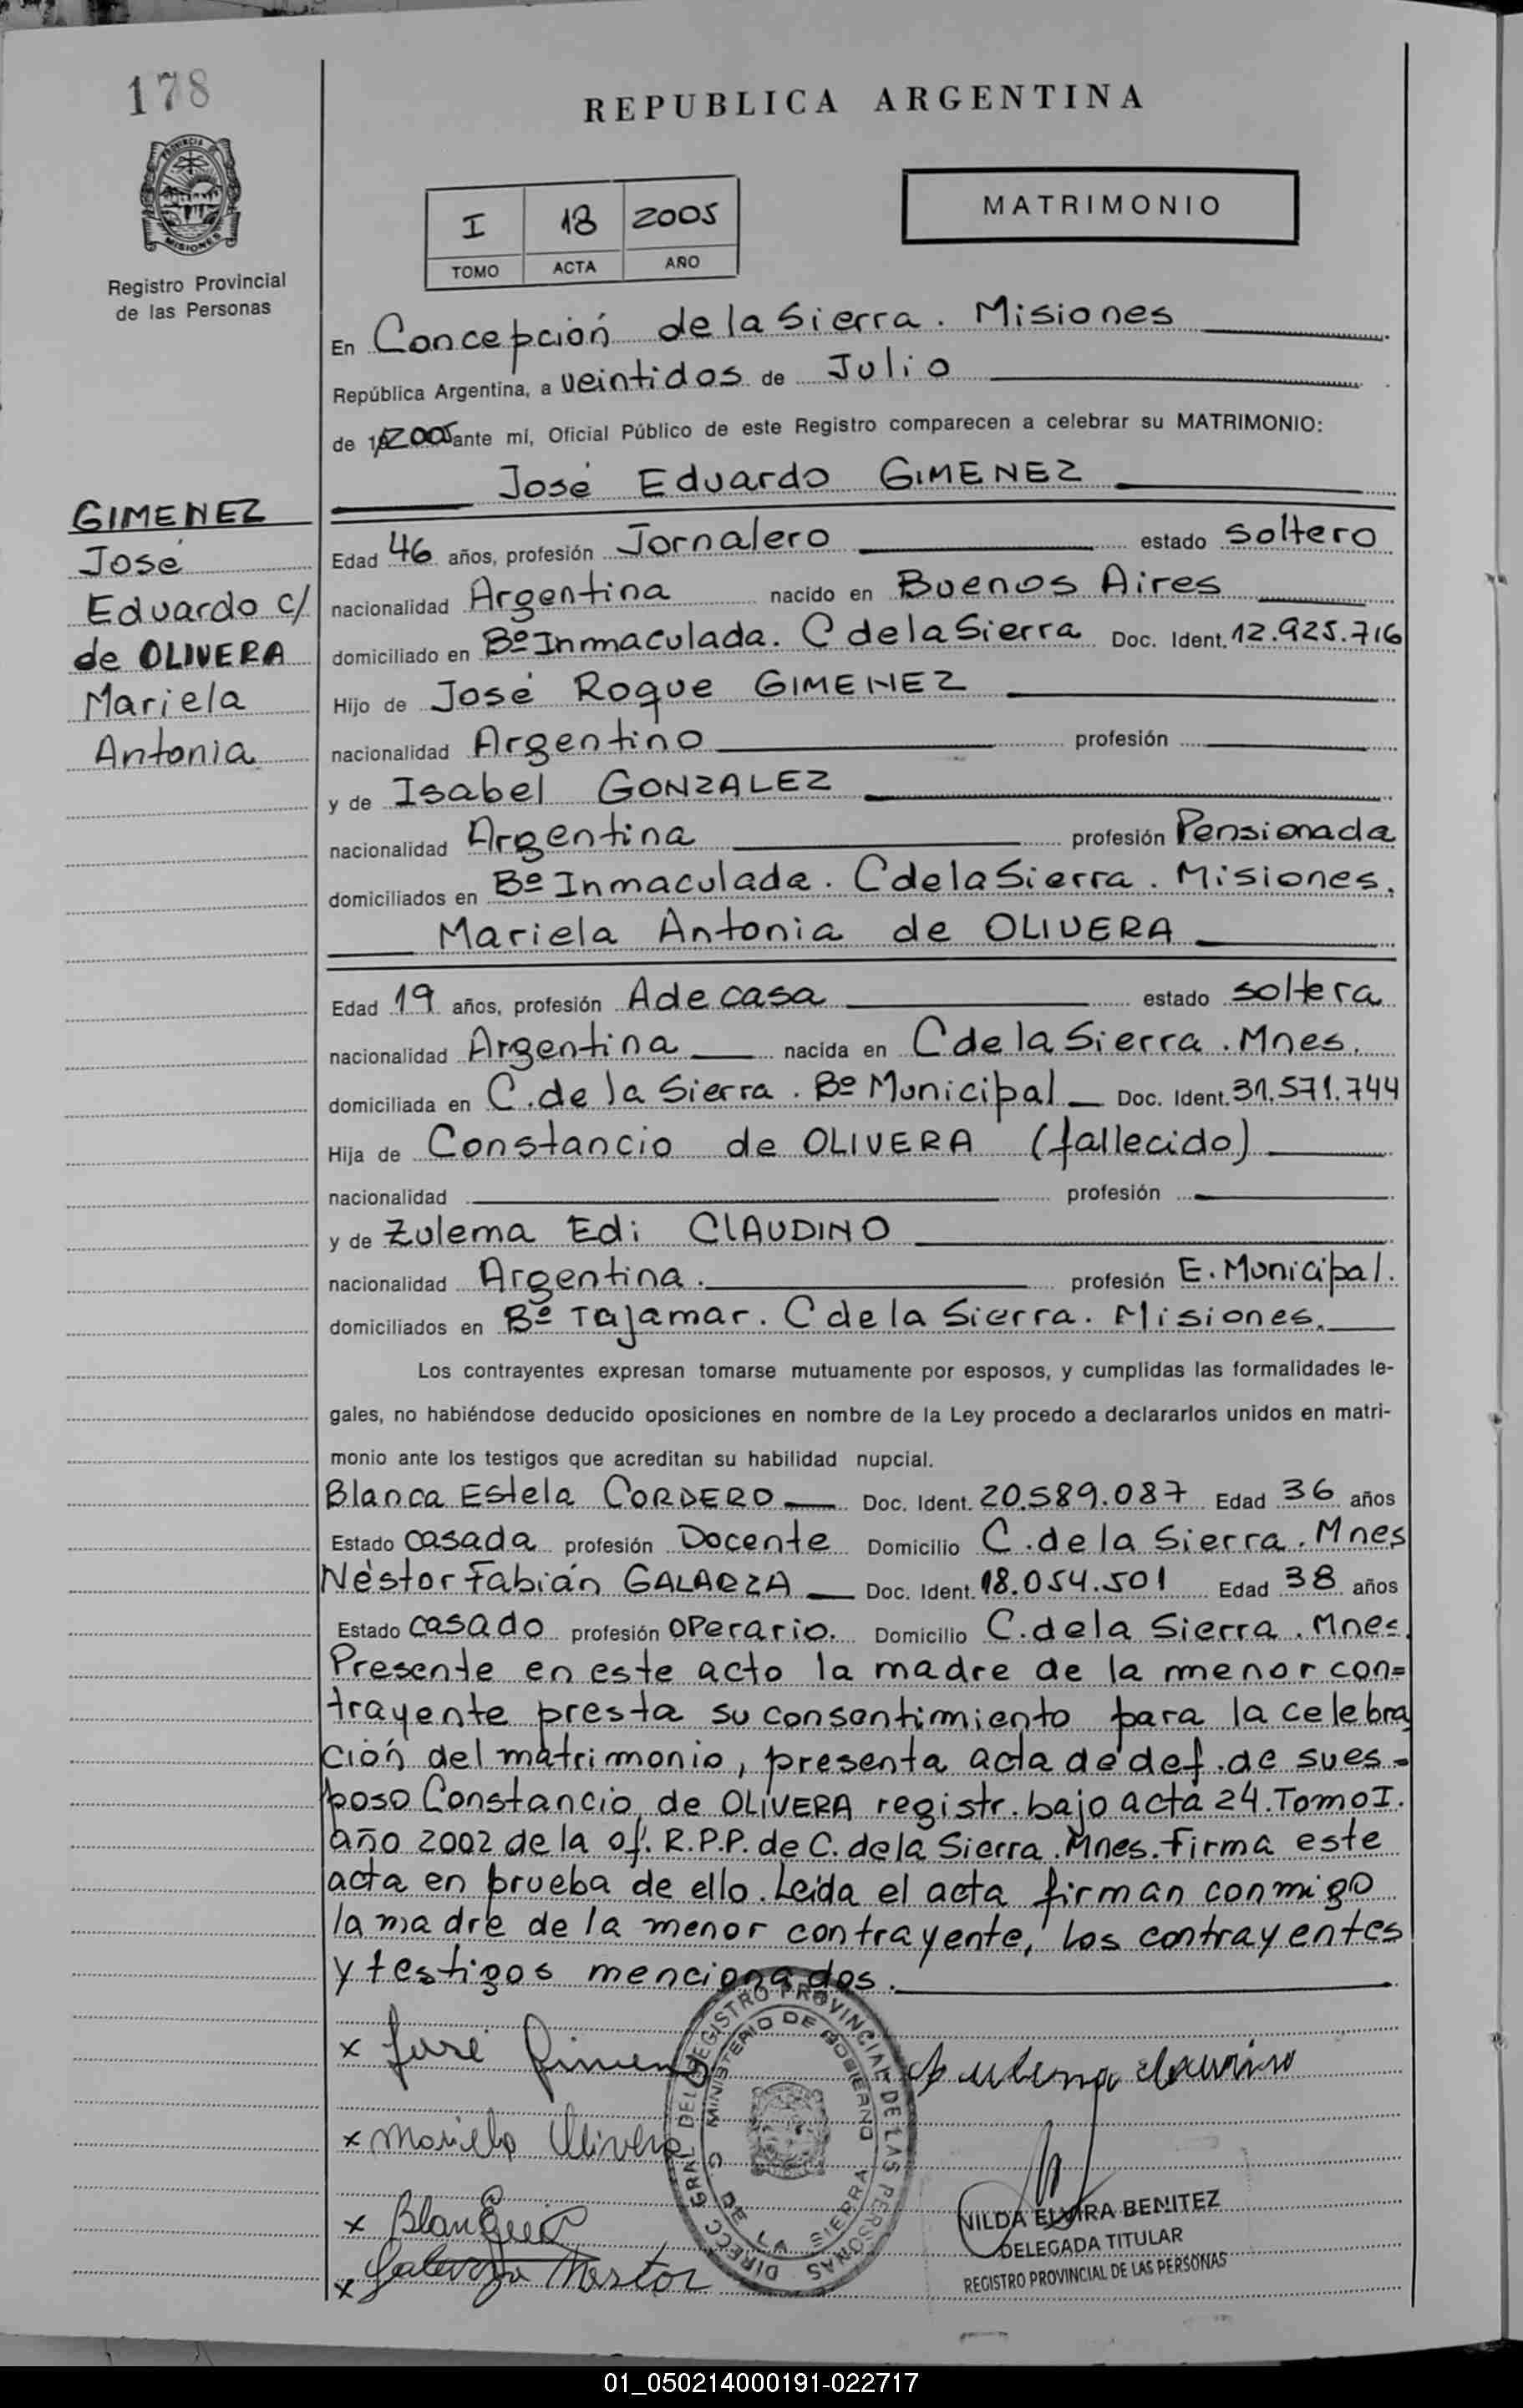 178
REPUBLICA ARGENTINA
PROVINCIA DE
MISIONES
Registro Provincial
de las Personas
I 18 2005
TOMO ACTA AÑO
MATRIMONIO
En Concepción de la Sierra. Misiones
República Argentina, a veintidos de Julio
de 19 2005 ante mí, Oficial Público de este Registro comparecen a celebrar su MATRIMONIO:
José Eduardo GIMENEZ
GIMENEZ
José
Eduardo c/
de OLIVERA
Mariela
Antonia
Edad 46 años, profesión Jornalero estado Soltero
nacionalidad Argentina nacido en Buenos Aires
domiciliado en Bº Inmaculada. C de la Sierra Doc. Ident. 12.925.716
Hijo de José Roque GIMENEZ
nacionalidad Argentino profesión
y de Isabel GONZALEZ
nacionalidad Argentina profesión Pensionada
domiciliados en Bº Inmaculada. C de la Sierra. Misiones.
Mariela Antonia de OLIVERA
Edad 19 años, profesión A de casa estado soltera
nacionalidad Argentina nacida en C de la Sierra. Mnes.
domiciliada en C. de la Sierra. Bº Municipal Doc. Ident. 31.571.744
Hija de Constancio de OLIVERA (fallecido)
nacionalidad profesión
y de Zulema Edi CLAUDINO
nacionalidad Argentina. profesión E. Municipal.
domiciliados en Bº Tajamar. C de la Sierra. Misiones.
Los contrayentes expresan tomarse mutuamente por esposos, y cumplidas las formalidades le-
gales, no habiéndose deducido oposiciones en nombre de la Ley procedo a declararlos unidos en matri-
monio ante los testigos que acreditan su habilidad nupcial.
Blanca Estela CORDERO Doc. Ident. 20.589.087 Edad 36 años
Estado casada profesión Docente Domicilio C. de la Sierra. Mnes
Néstor Fabián GALARZA Doc. Ident. 18.054.501 Edad 38 años
Estado casado profesión Operario. Domicilio C. de la Sierra. Mnes.
Presente en este acto la madre de la menor con=
trayente presta su consentimiento para la celebra
ción del matrimonio, presenta acta de def. de su es=
poso Constancio de OLIVERA registr. bajo acta 24. Tomo I.
año 2002 de la of. R.P.P. de C. de la Sierra. Mnes. Firma este
acta en prueba de ello. Leida el acta firman conmigo
la madre de la menor contrayente, los contrayentes
y testigos mencionados.
x José Gimenez
Zulema Claudino
x Mariela Olivera
x
x Galarza Nestor
DIRECC GRAL DEL REGISTRO PROVINCIAL DE LAS PERSONAS
MINISTERIO DE GOBIERNO
C DE LA SIERRA
NILDA ELVIRA BENITEZ
DELEGADA TITULAR
REGISTRO PROVINCIAL DE LAS PERSONAS
01_050214000191-022717